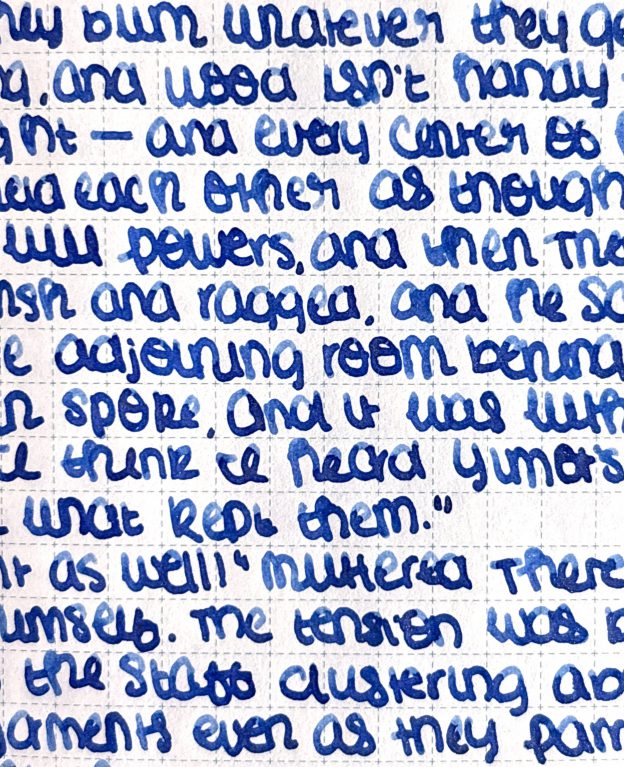 burn whatever they
and wood isn't handy
— and every center of
each other as though
will powers, and then
and ragged, and he
adjoining room behind
spoke. And it was with
think I heard Yimot's
what kept them."
as well!" muttered
himself. The tension was
the staff clustering
even as they